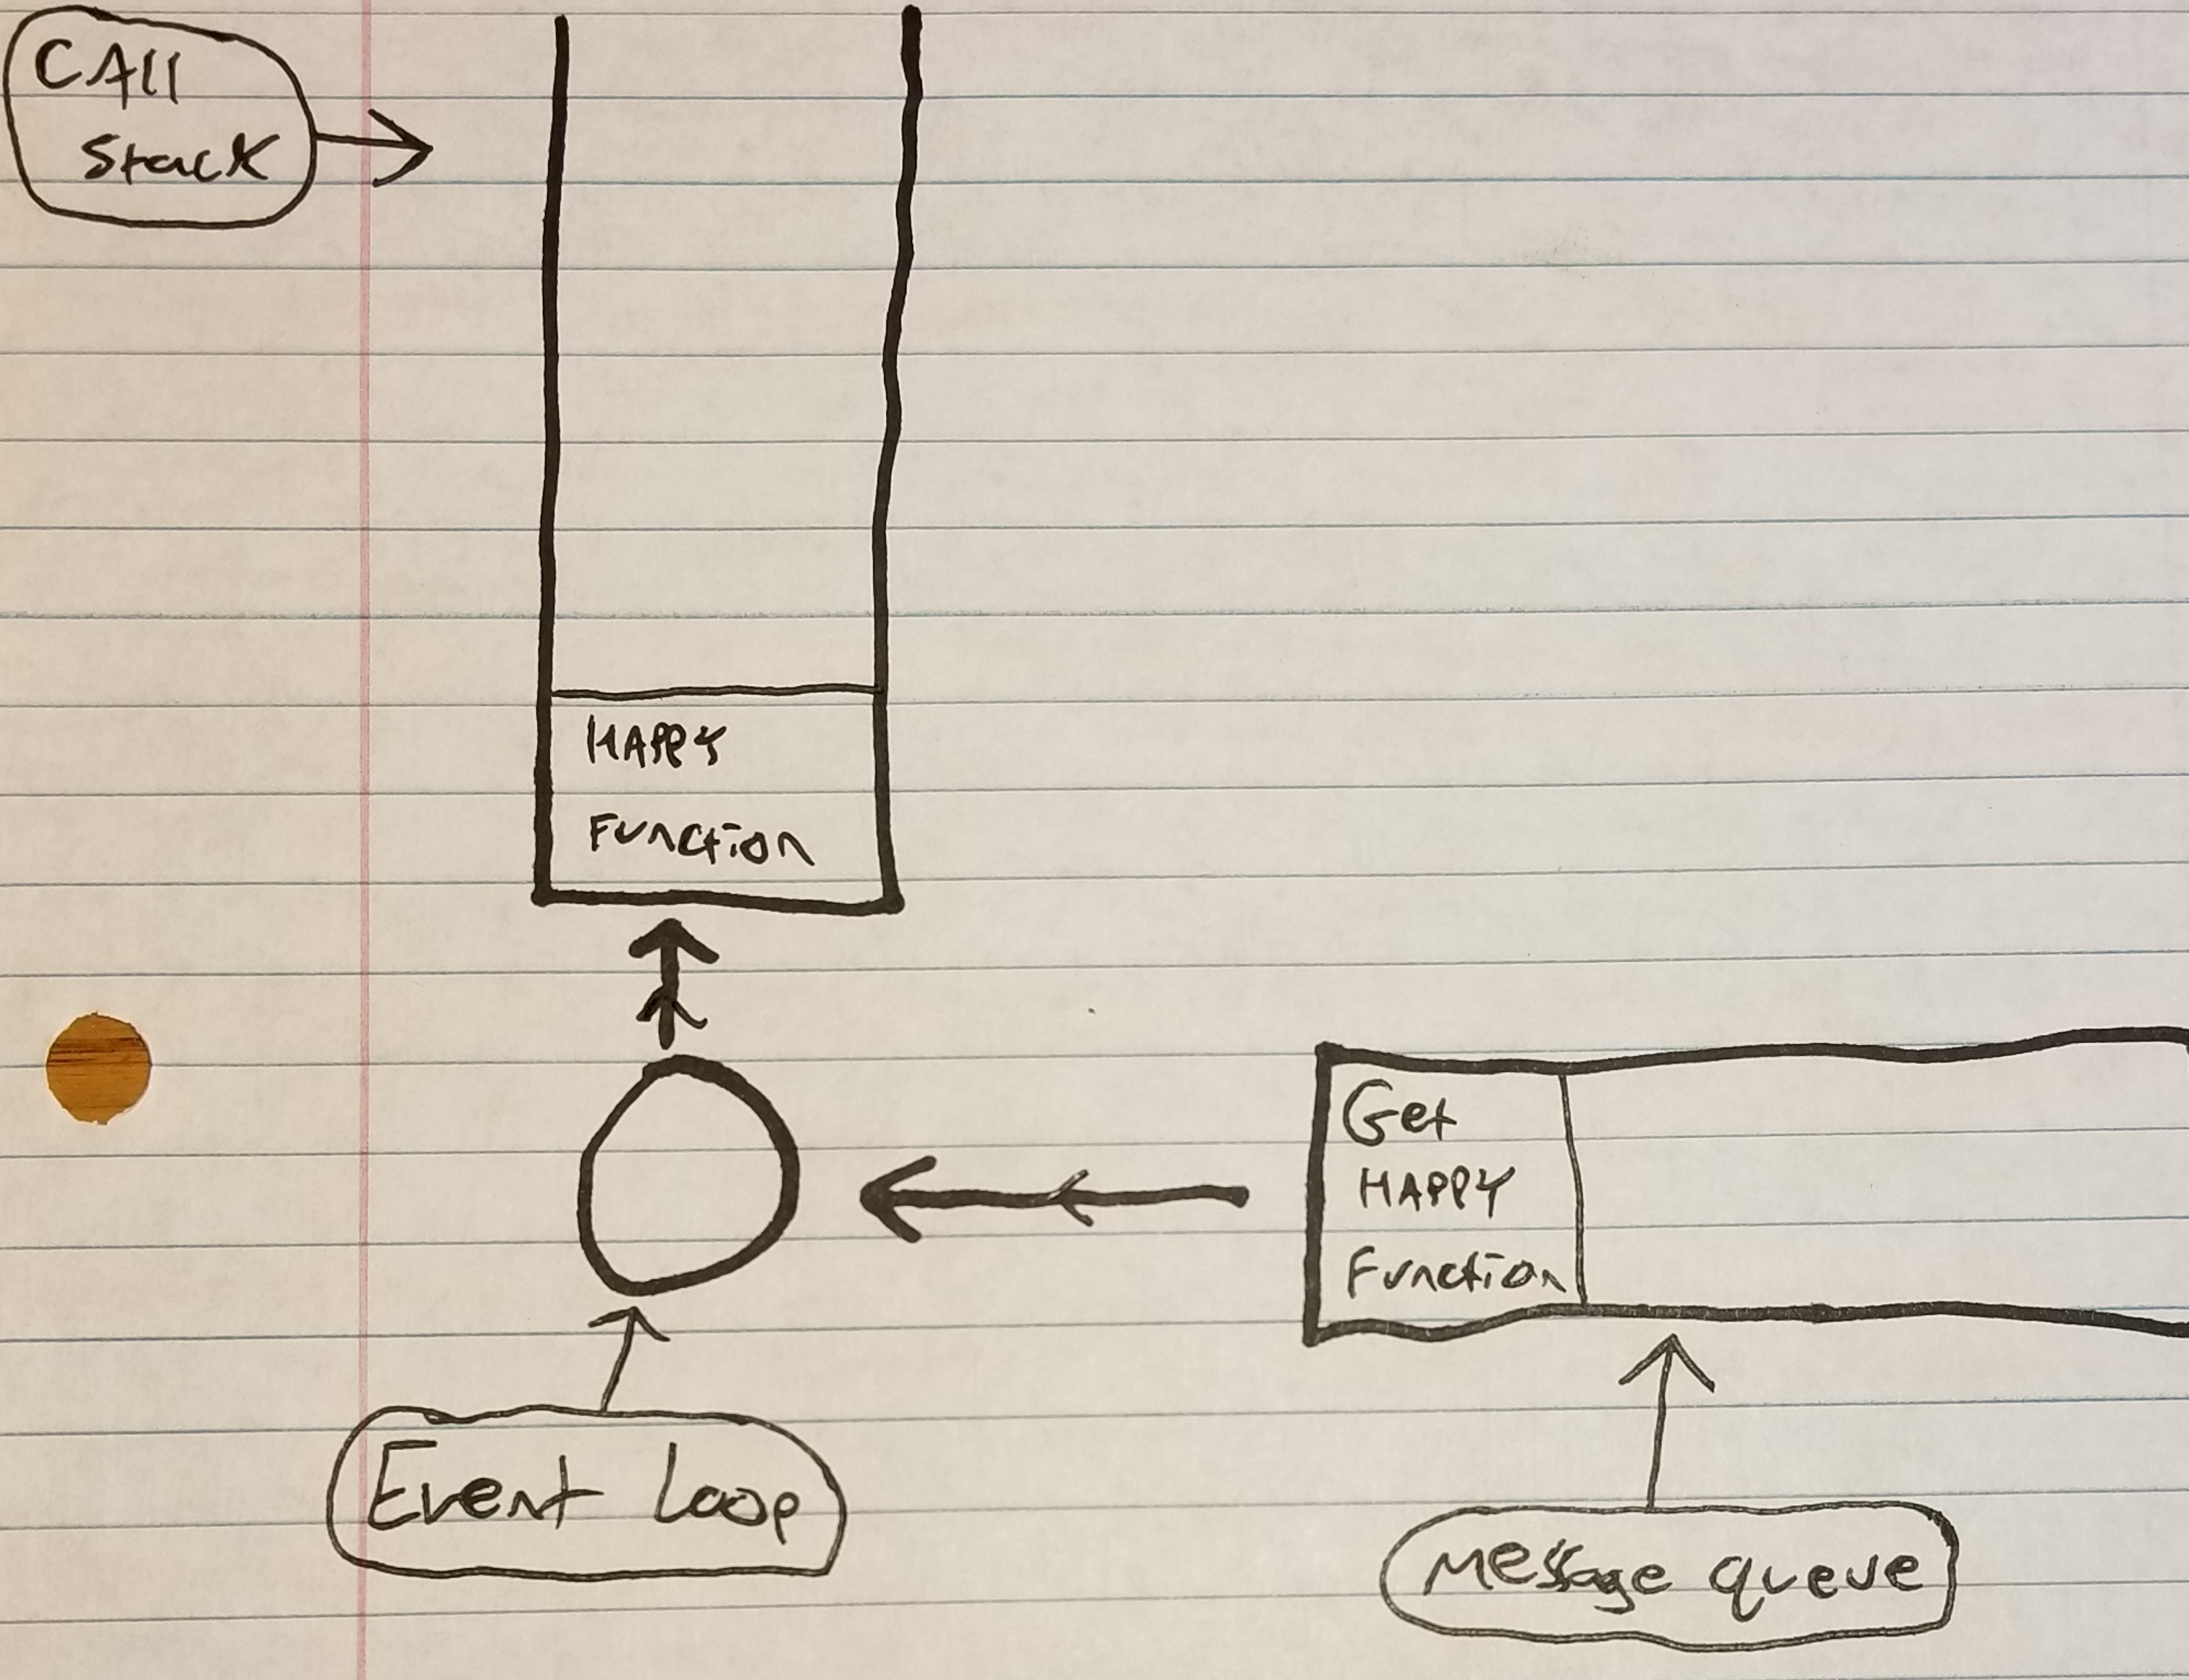 CAll
Stack
HAPPY
Function
Get
HAPPY
Function
Event Loop
Message queue